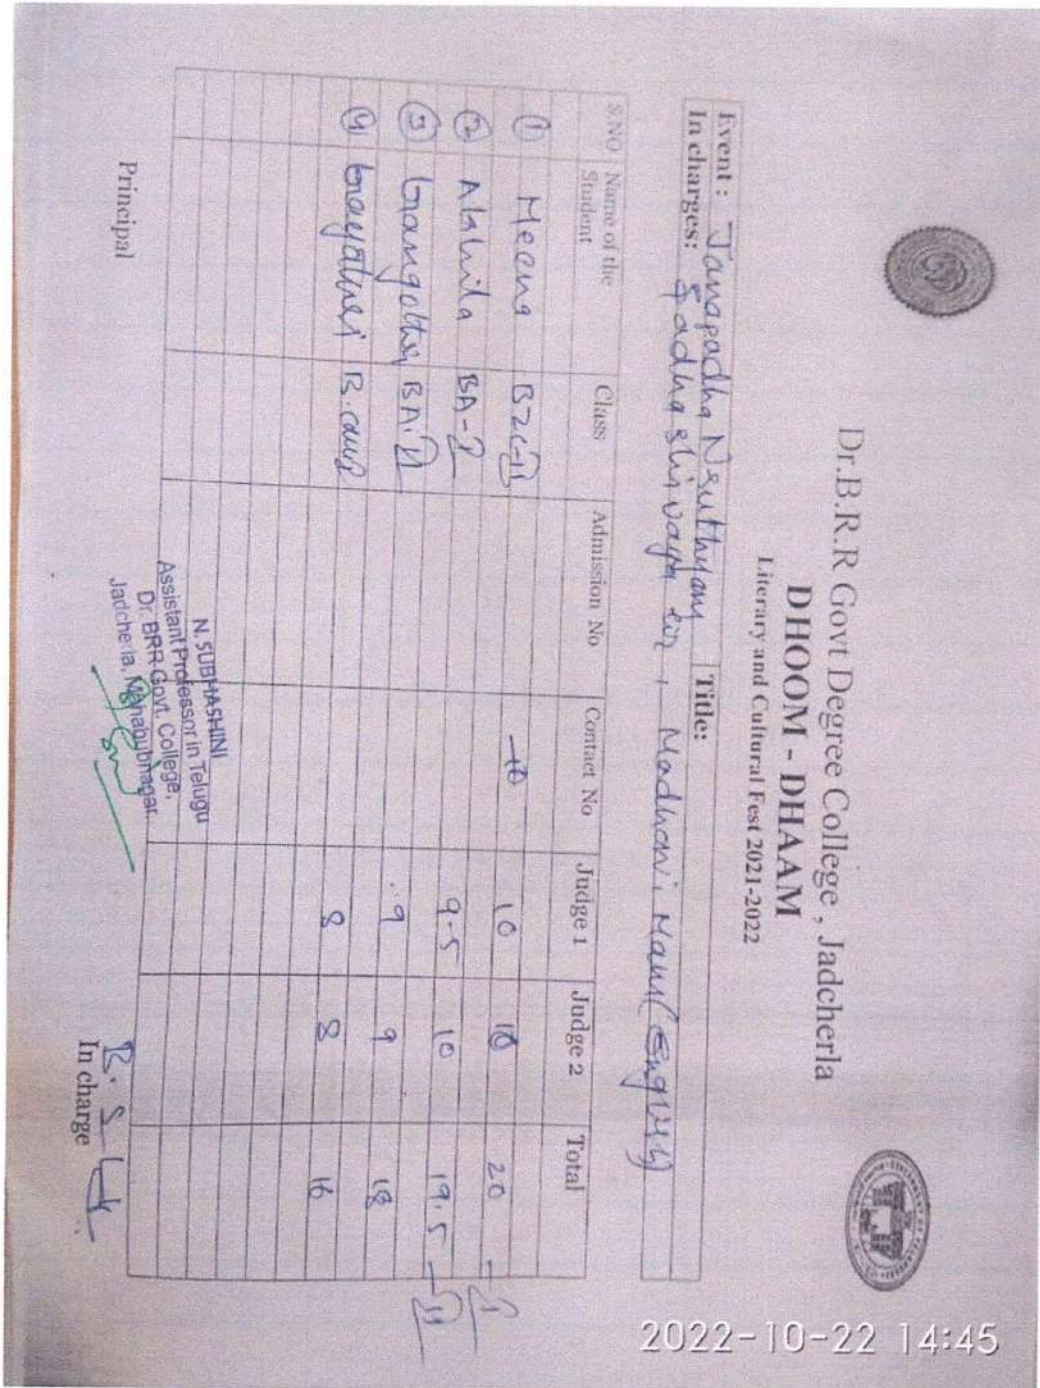 Dr.B.R.R Govt Degree College , Jadcherla
DHOOM - DHAAM
Literary and Cultural Fest 2021-2022
Event : Janapadha Nruthyam Title:
In charges: Sadha shivaya sir , Madhavi. Mam (English)
S.NO Name of the Student Class Admission No Contact No Judge 1 Judge 2 Total
1 Meena BZC-II 10 10 20 - I
2 Akhila BA-I 9.5 10 19.5 - II
3 Gangothri BA.II 9 9 18
4 Gayathri B.com 8 8 16
N. SUBHASHINI
Assistant Professor in Telugu
Dr. BRR Govt. College,
Jadcherla, Mahabubnagar.
Principal In charge
2022-10-22 14:45